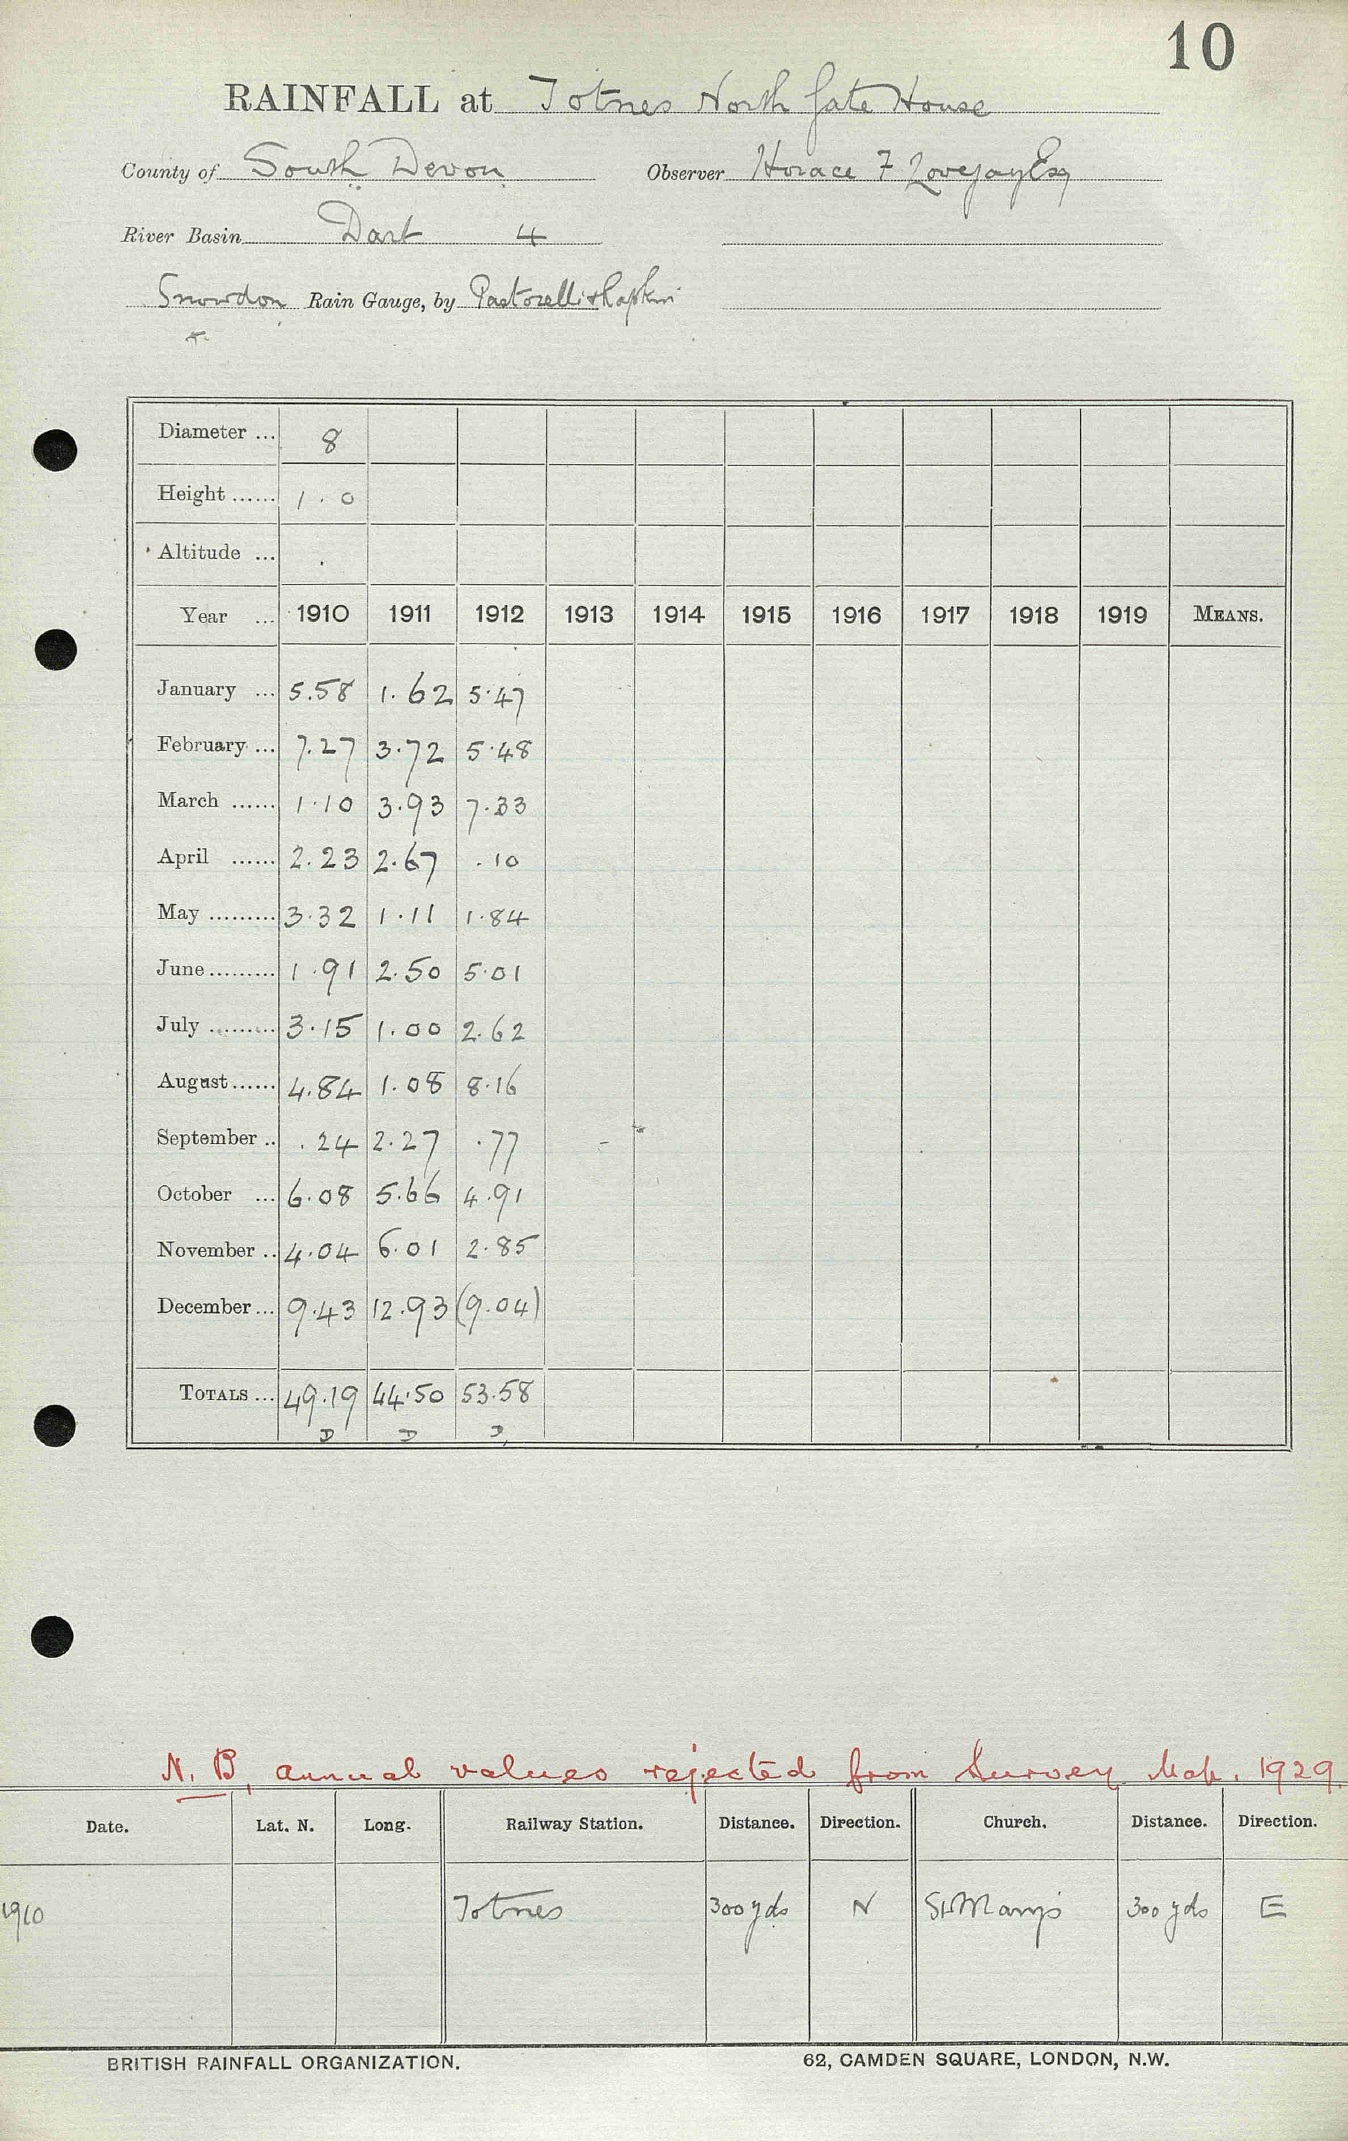 10
RAINFALL at Totnes North Gate House
County of South Devon Observer Horace F. Lovejoy Esq
River Basin Dart 4
Snowdon Rain Gauge, by Pastorelli & Rapkin
Diameter ... 8
Height ...... 1.0
Altitude ...
Year ... 1910 1911 1912 1913 1914 1915 1916 1917 1918 1919 MEANS.
January ... 5.58 1.62 5.47
February ... 7.27 3.72 5.48
March ...... 1.10 3.93 7.33
April ...... 2.23 2.67 .10
May ......... 3.32 1.11 1.84
June ......... 1.91 2.50 5.01
July ......... 3.15 1.00 2.62
August ...... 4.84 1.08 8.16
September .. .24 2.27 .77
October ... 6.08 5.66 4.91
November .. 4.04 6.01 2.85
December ... 9.43 12.93 (9.04)
TOTALS ... 49.19 44.50 53.58
D D D
N.B, annual values rejected from Survey Map. 1929.
Date. Lat. N. Long. Railway Station. Distance. Direction. Church. Distance. Direction.
1910 Totnes 300 yds N St Mary's 300 yds E
BRITISH RAINFALL ORGANIZATION. 62, CAMDEN SQUARE, LONDON, N.W.